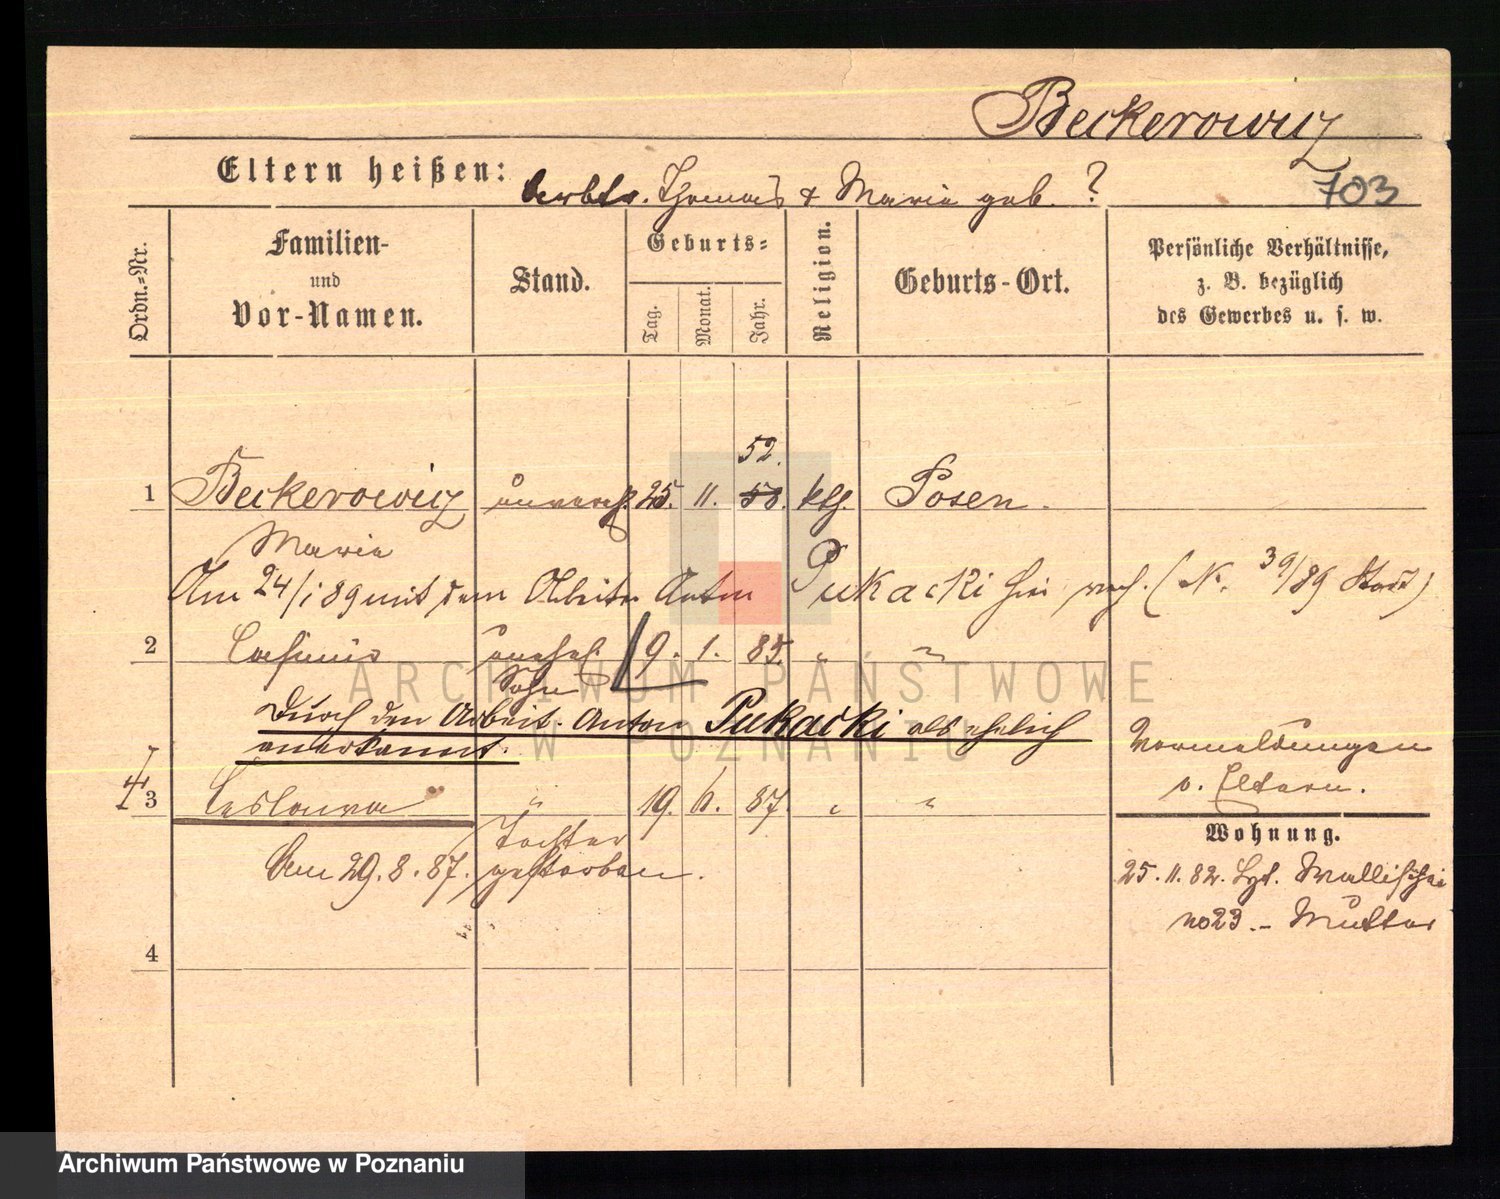 Beckerowicz
703
Eltern heißen: Thomas & Maria geb. ?
Ordn.=Nr.
Familien-
und
Vor-Namen.
Stand.
Geburts=
Tag.
Monat.
Jahr.
Religion.
Geburts-Ort.
Persönliche Verhältnisse,
z. B. bezüglich
des Gewerbes u. s. w.
52.
1 Beckerowicz unvereh. 25. 11. 53. kth. Posen.
Maria
Am 24/1 89 mit dem Arbeiter Anton Pukacki hier (N. 39/89 )
2 Casimir unehel. 9. 1. 85. " "
Sohn
Durch den Arbeit. Anton Pukacki als ehelich
anerkannt.
Vormeldungen
v. Eltern.
3 Ceslawa " 19. 6. 87. " "
Tochter
Am 29. 8. 87. gestorben.
Wohnung.
25. 11. 82. Wallischei
no 23. - Mutter
4
ARCHIWUM PAŃSTWOWE
W POZNANIU
Archiwum Państwowe w Poznaniu